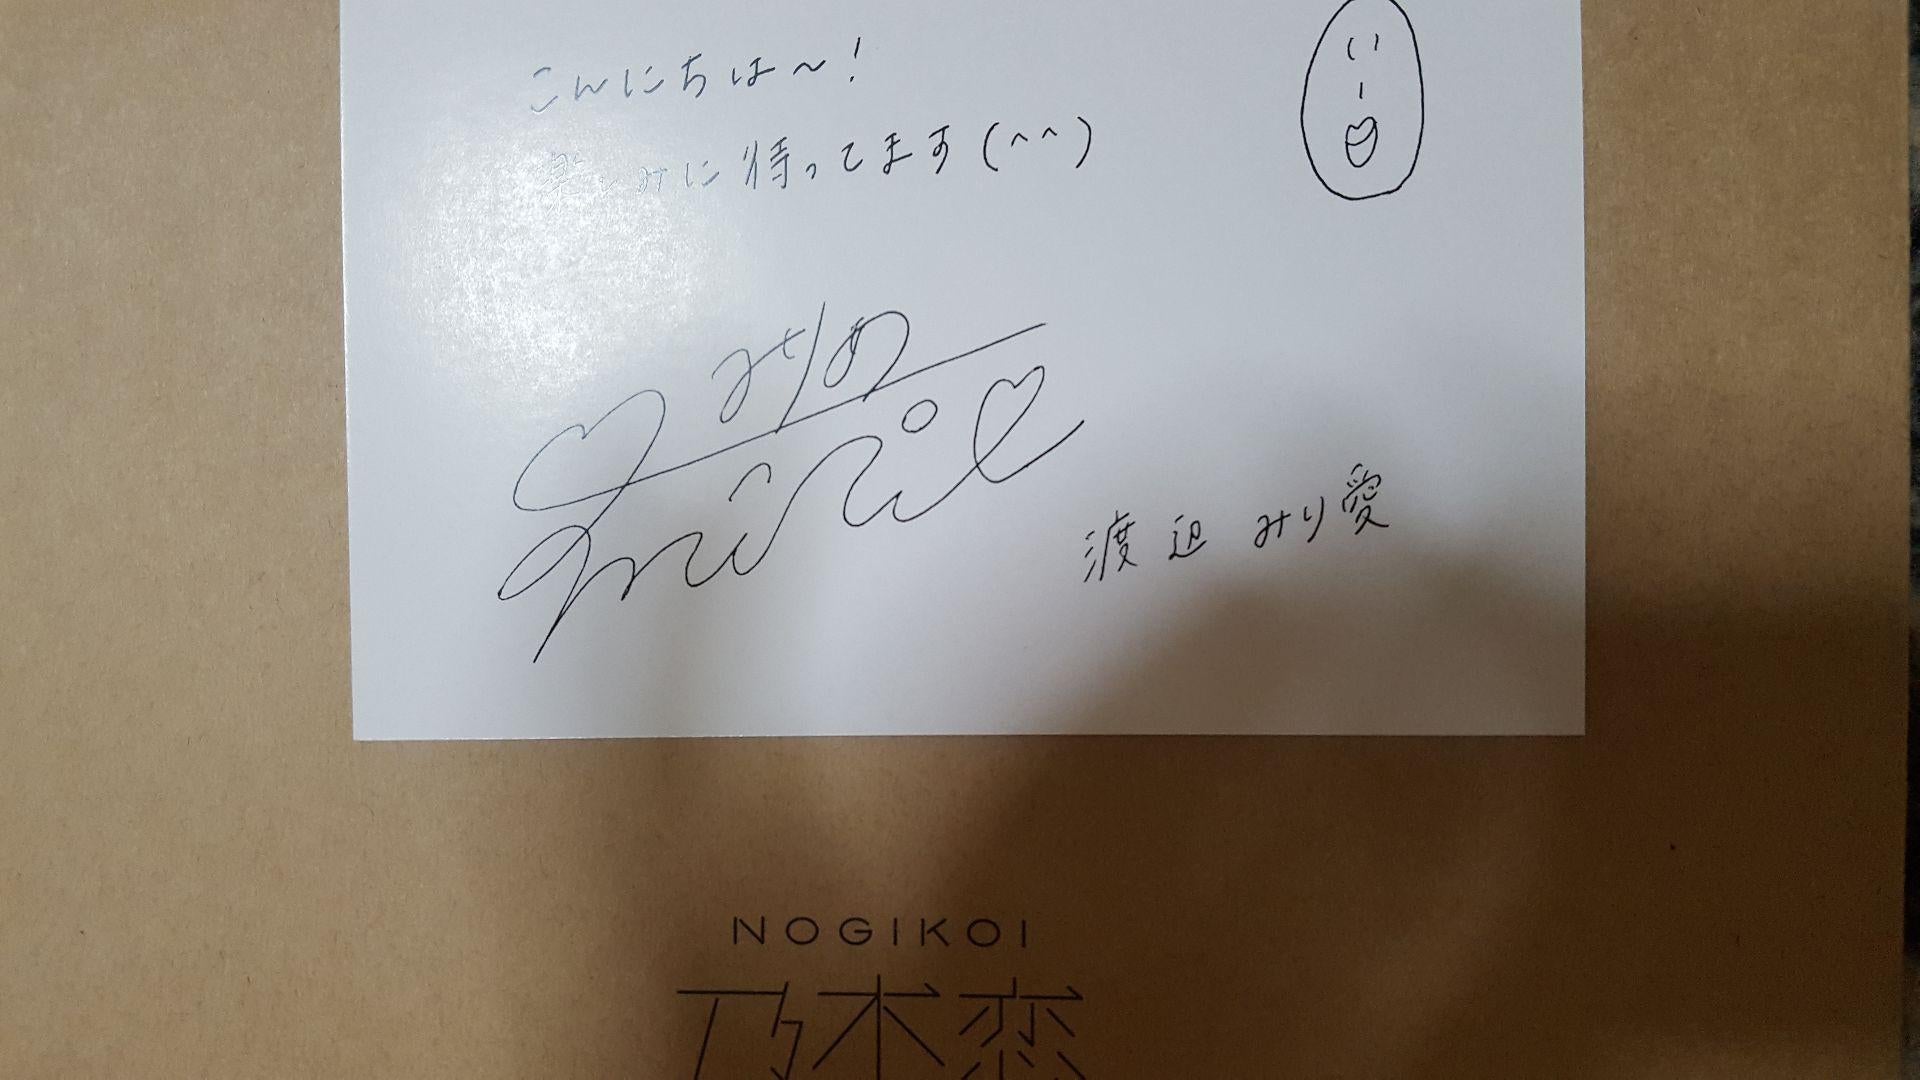 こんにちは～!
楽しみに待ってます(^^)
みりあ
miria
渡辺 みり愛
NOGIKOI
乃木恋